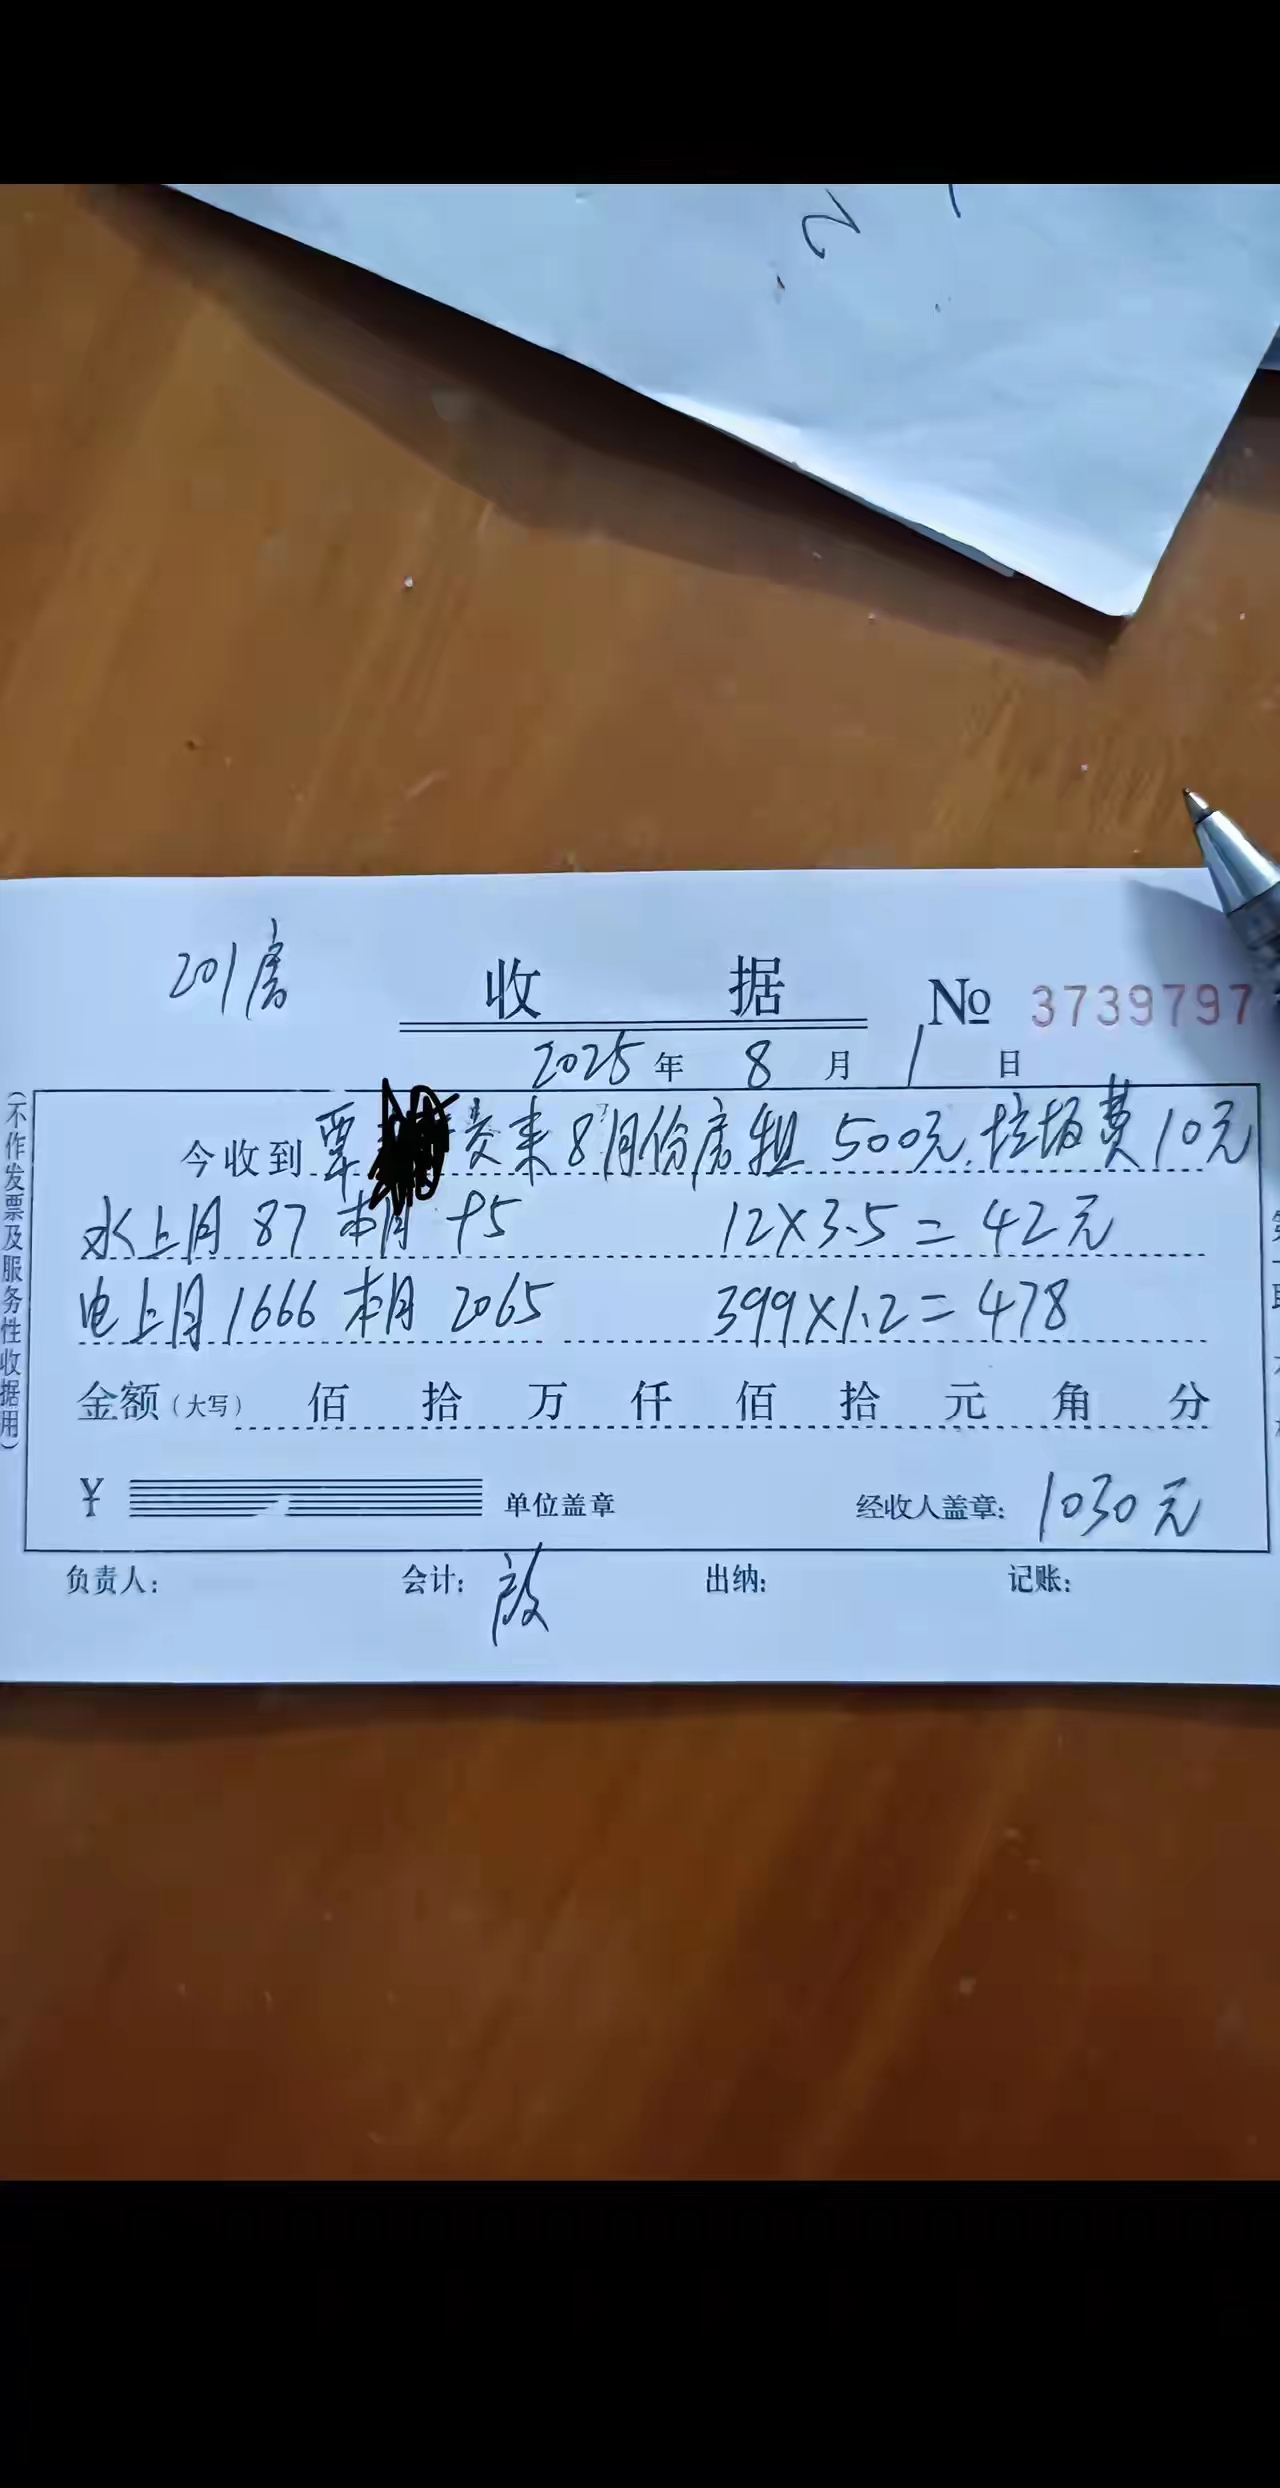 201房
收 据
№ 3739797
2025年 8月 1日
(不作发票及服务性收据用)
今收到 覃 交来8月份房租 500元.垃圾费10元
水上月 87 本月 95 12×3.5=42元
电上月1666 本月 2065 399×1.2=478
金额(大写) 佰 拾 万 仟 佰 拾 元 角 分
¥ 单位盖章 经收人盖章: 1030元
负责人: 会计: 出纳: 记账: